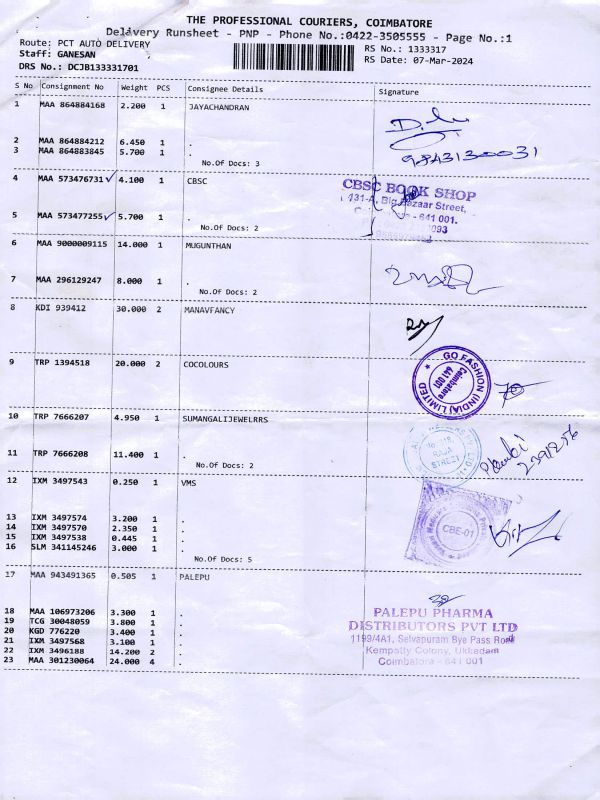 THE PROFESSIONAL COURIERS, COIMBATORE
Delivery Runsheet - PNP - Phone No.:0422-3505555 - Page No.:1
Route: PCT AUTO DELIVERY RS No.: 1333317
Staff: GANESAN RS Date: 07-Mar-2024
DRS No.: DCJB133331701
S No Consignment No Weight PCS Consignee Details Signature
1 MAA 864884168 2.200 1 JAYACHANDRAN
2 MAA 864884212 6.450 1 .
3 MAA 864883845 5.700 1 .
9843130031
No.Of Docs: 3
4 MAA 573476731 ✓ 4.100 1 CBSC
CBSC BOOK SHOP
131-A, Big Bazaar Street,
- 641 001.
5 MAA 573477255 ✓ 5.700 1 .
No.Of Docs: 2
6 MAA 9000009115 14.000 1 MUGUNTHAN
7 MAA 296129247 8.000 1 .
No.Of Docs: 2
8 KDI 939412 30.000 2 MANAVFANCY
9 TRP 1394518 20.000 2 COCOLOURS
GO FASHION (INDIA) LIMITED
Coimbatore
641 001
10 TRP 7666207 4.950 1 SUMANGALIJEWELRRS
RAJA
STREET
11 TRP 7666208 11.400 1 .
No.Of Docs: 2
12 IXM 3497543 0.250 1 VMS
CBE-01
13 IXM 3497574 3.200 1 .
14 IXM 3497570 2.350 1 .
15 IXM 3497538 0.445 1 .
16 SLM 341145246 3.000 1 .
No.Of Docs: 5
17 MAA 943491365 0.505 1 PALEPU
PALEPU PHARMA
DISTRIBUTORS PVT LTD
1199/4A1, Selvapuram Bye Pass Road
Kempatty Colony, Ukkadam
Coimbatore - 641 001
18 MAA 106973206 3.300 1 .
19 TCG 30048059 3.800 1 .
20 KGD 776220 3.400 1 .
21 IXM 3497568 3.100 1 .
22 IXM 3496188 14.200 2 .
23 MAA 301230064 24.000 4 .